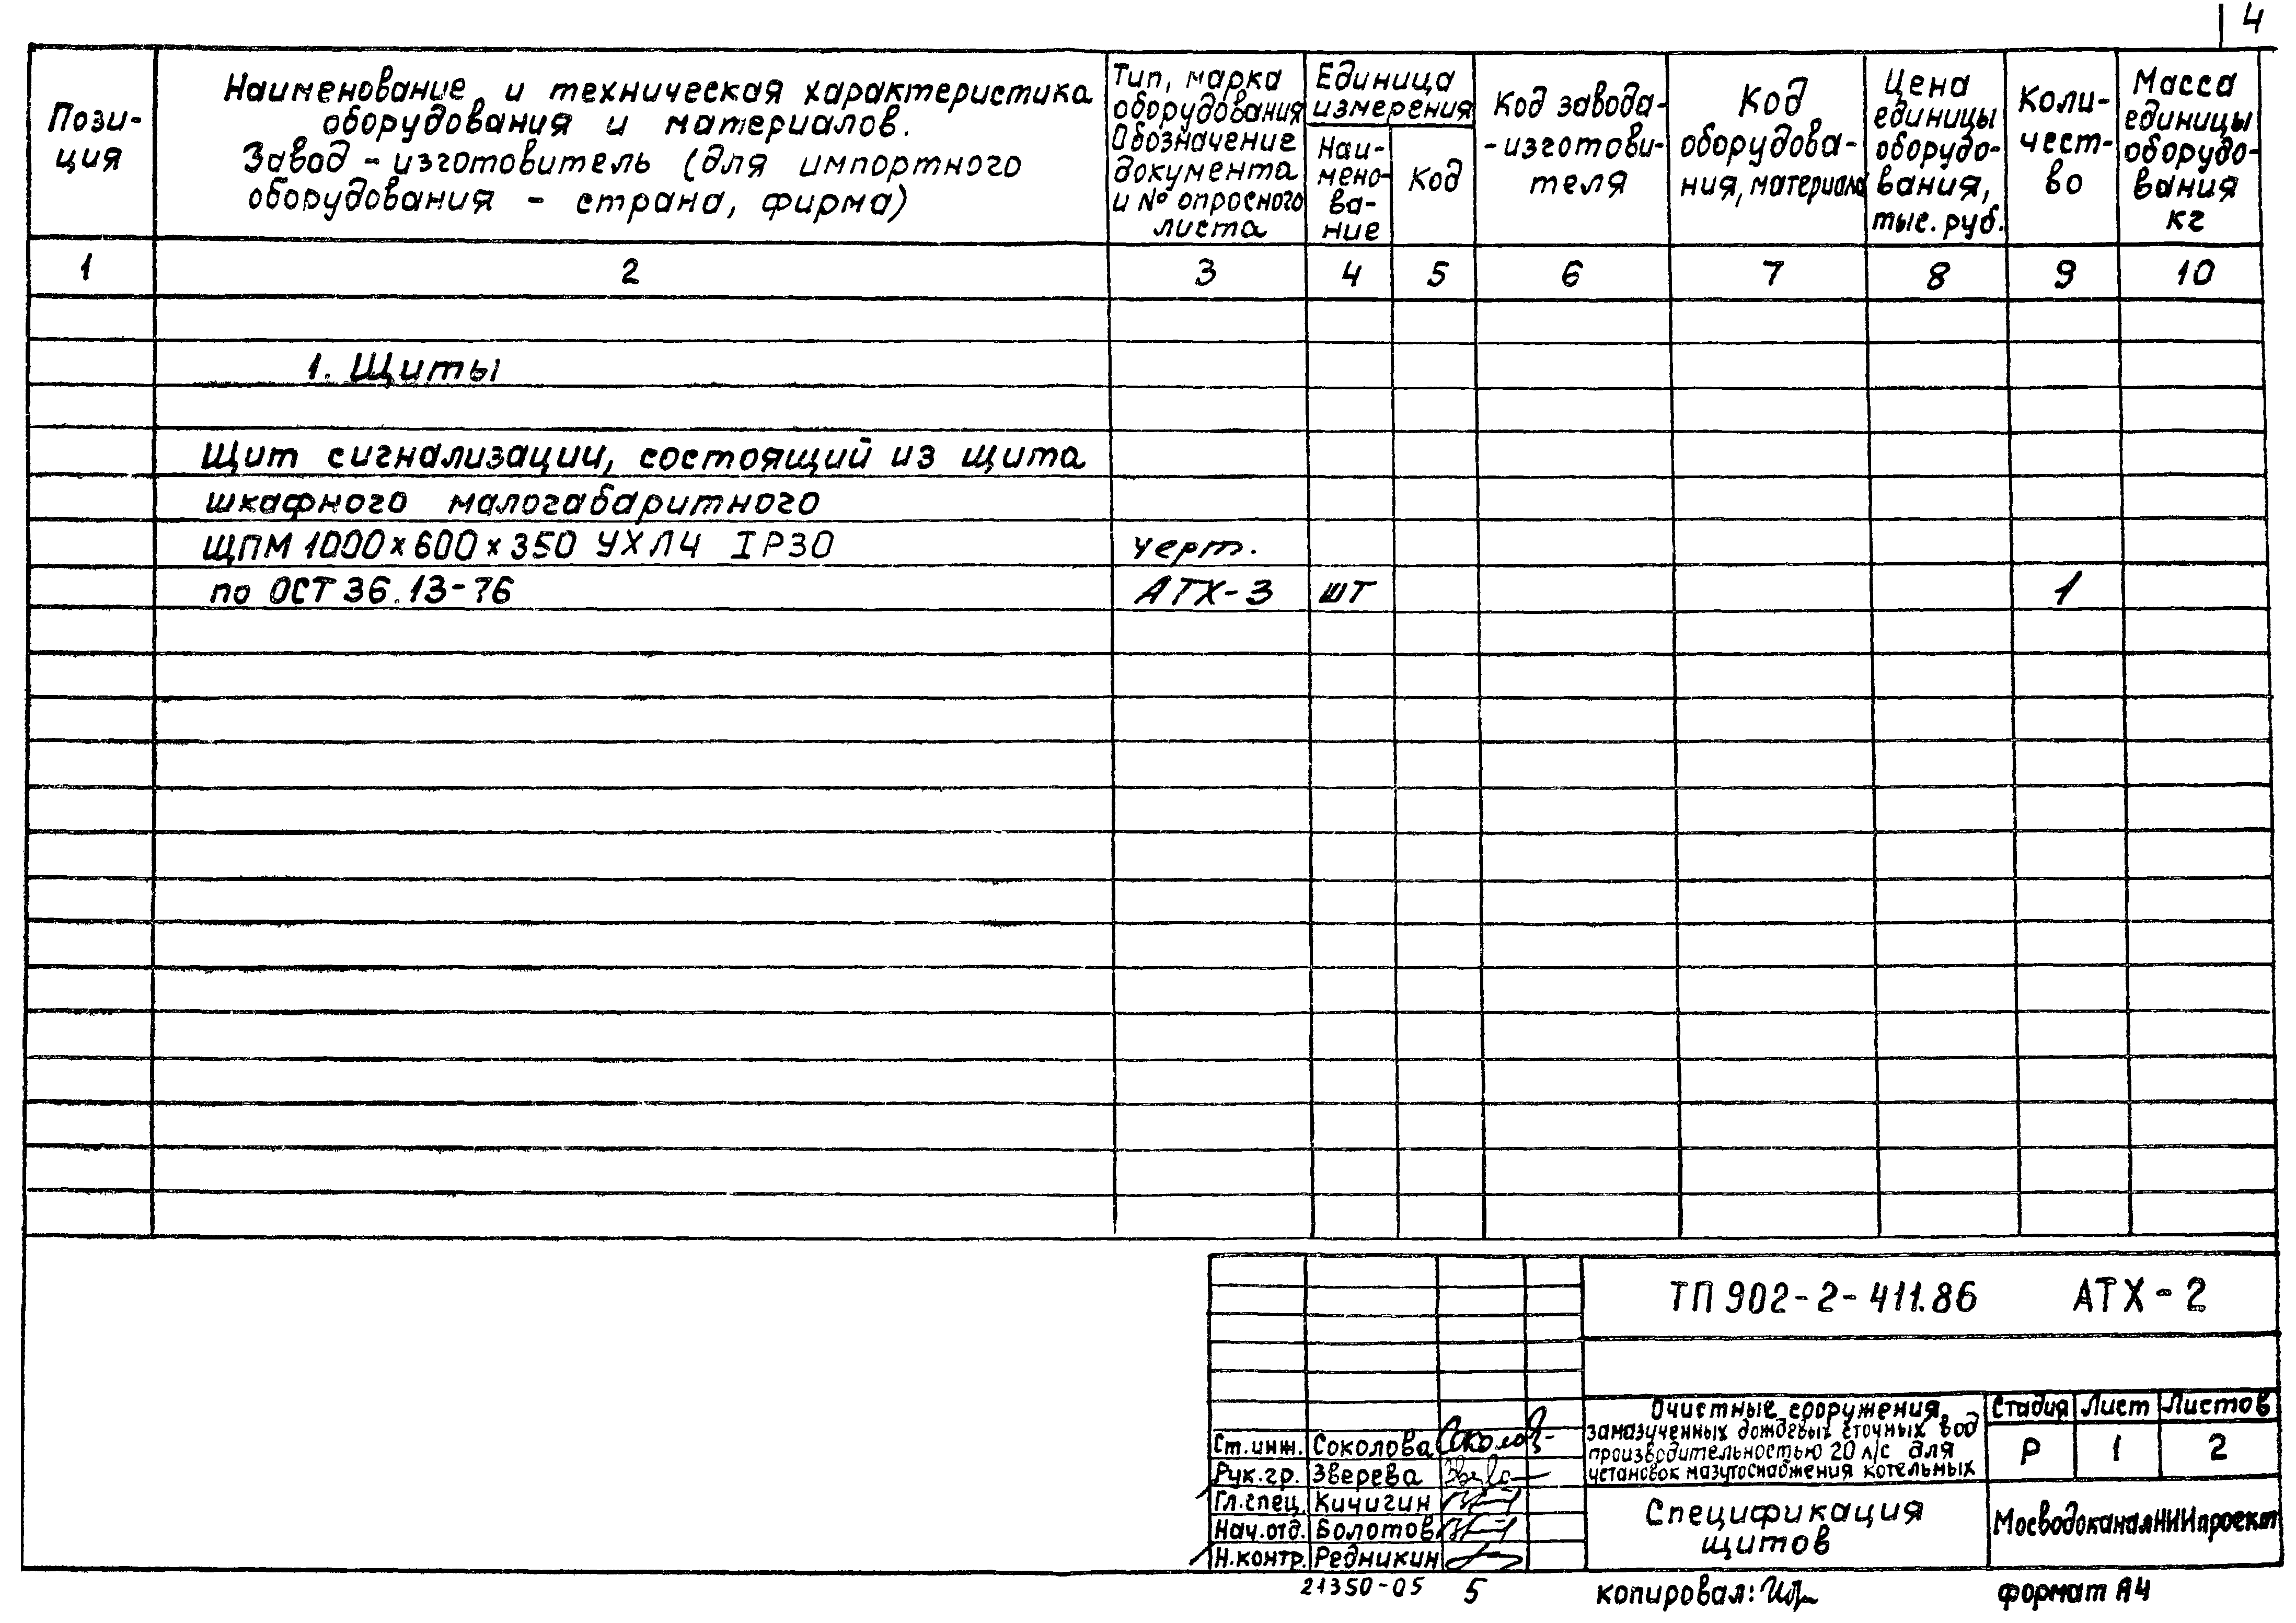 4
Пози-
ция
Наименование и техническая характеристика
оборудования и материалов.
Завод - изготовитель (для импортного
оборудования - страна, фирма)
Тип, марка
оборудования
Обозначение
документа
и № опросного
листа
Единица
измерения
Наи-
мено-
ва-
ние
Код
Код завода-
-изготови-
теля
Код
оборудова-
ния, материала
Цена
единицы
оборудо-
вания,
тыс. руб.
Коли-
чест-
во
Масса
единицы
оборудо-
вания
кг
1 2 3 4 5 6 7 8 9 10
1. Щиты
Щит сигнализации, состоящий из щита
шкафного малогабаритного
ЩПМ 1000×600×350 УХЛ4 IP30 черт.
по ОСТ 36.13-76 АТХ-3 шт 1
ТП 902-2-411.86 АТХ-2
Очистные сооружения
замазученных дождевых сточных вод
производительностью 20 л/с для
установок мазутоснабжения котельных
Стадия Лист Листов
Р 1 2
Ст.инж. Соколова
Рук.гр. Зверева
Гл.спец. Кичигин
Нач.отд. Болотов
Н.контр. Редникин
Спецификация
щитов
МосводоканалНИИпроект
21350-05 5 копировал: формат А4